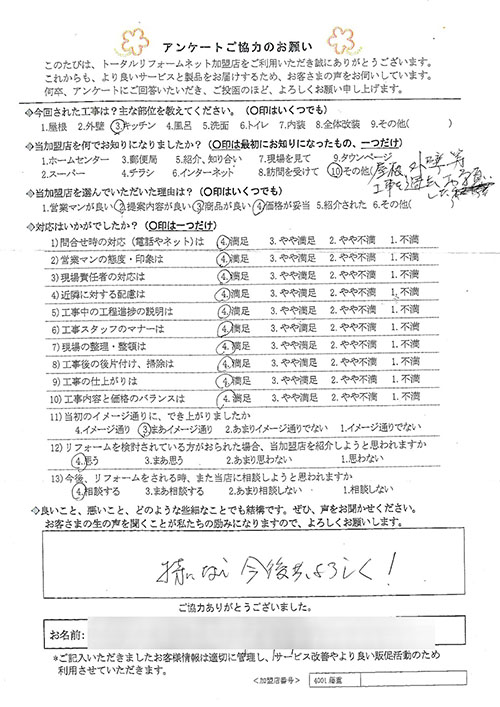 アンケートご協力のお願い
このたびは、トータルリフォームネット加盟店をご利用いただき誠にありがとうございます。
これからも、より良いサービスと製品をお届けするため、お客さまの声をお伺いしています。
何卒、アンケートにご回答いただき、ご投函のほど、よろしくお願い申し上げます。
◇今回された工事は？主な部位を教えてください。（○印はいくつでも）
1.屋根 2.外壁 3.キッチン 4.風呂 5.洗面 6.トイレ 7.内装 8.全体改装 9.その他( )
◇当加盟店を何でお知りになりましたか？（○印は最初にお知りになったもの、一つだけ）
1.ホームセンター 3.郵便局 5.紹介、知り合い 7.現場を見て 9.タウンページ
2.スーパー 4.チラシ 6.インターネット 8.訪問を受けて 10.その他( 屋根 外壁等
工事を過去お願い
した
◇当加盟店を選んでいただいた理由は？（○印はいくつでも）
1.営業マンが良い 2.提案内容が良い 3.商品が良い 4.価格が妥当 5.紹介された 6.その他(
◇対応はいかがでしたか？（○印は一つだけ）
1)問合せ時の対応（電話やネット）は 4.満足 3.やや満足 2.やや不満 1.不満
2)営業マンの態度・印象は 4.満足 3.やや満足 2.やや不満 1.不満
3)現場責任者の対応は 4.満足 3.やや満足 2.やや不満 1.不満
4)近隣に対する配慮は 4.満足 3.やや満足 2.やや不満 1.不満
5)工事中の工程進捗の説明は 4.満足 3.やや満足 2.やや不満 1.不満
6)工事スタッフのマナーは 4.満足 3.やや満足 2.やや不満 1.不満
7)現場の整理・整頓は 4.満足 3.やや満足 2.やや不満 1.不満
8)工事後の後片付け、掃除は 4.満足 3.やや満足 2.やや不満 1.不満
9)工事の仕上がりは 4.満足 3.やや満足 2.やや不満 1.不満
10)工事内容と価格のバランスは 4.満足 3.やや満足 2.やや不満 1.不満
11)当初のイメージ通りに、でき上がりましたか
4.イメージ通り 3.まあイメージ通り 2.あまりイメージ通りでない 1.イメージ通りでない
12)リフォームを検討されている方がおられた場合、当加盟店を紹介しようと思われますか
4.思う 3.まあ思う 2.あまり思わない 1.思わない
13)今後、リフォームをされる時、また当店に相談しようと思われますか
4.相談する 3.まあ相談する 2.あまり相談しない 1.相談しない
◇良いこと、悪いこと、どのような些細なことでも結構です。ぜひ、声をお聞かせください。
お客さまの生の声を聞くことが私たちの励みになりますので、よろしくお願いします。
特になし 今後共、よろしく！
ご協力ありがとうございました。
お名前:
*ご記入いただきましたお客様情報は適切に管理し、サービス改善やより良い販促活動のため
利用させていただきます。
<加盟店番号>